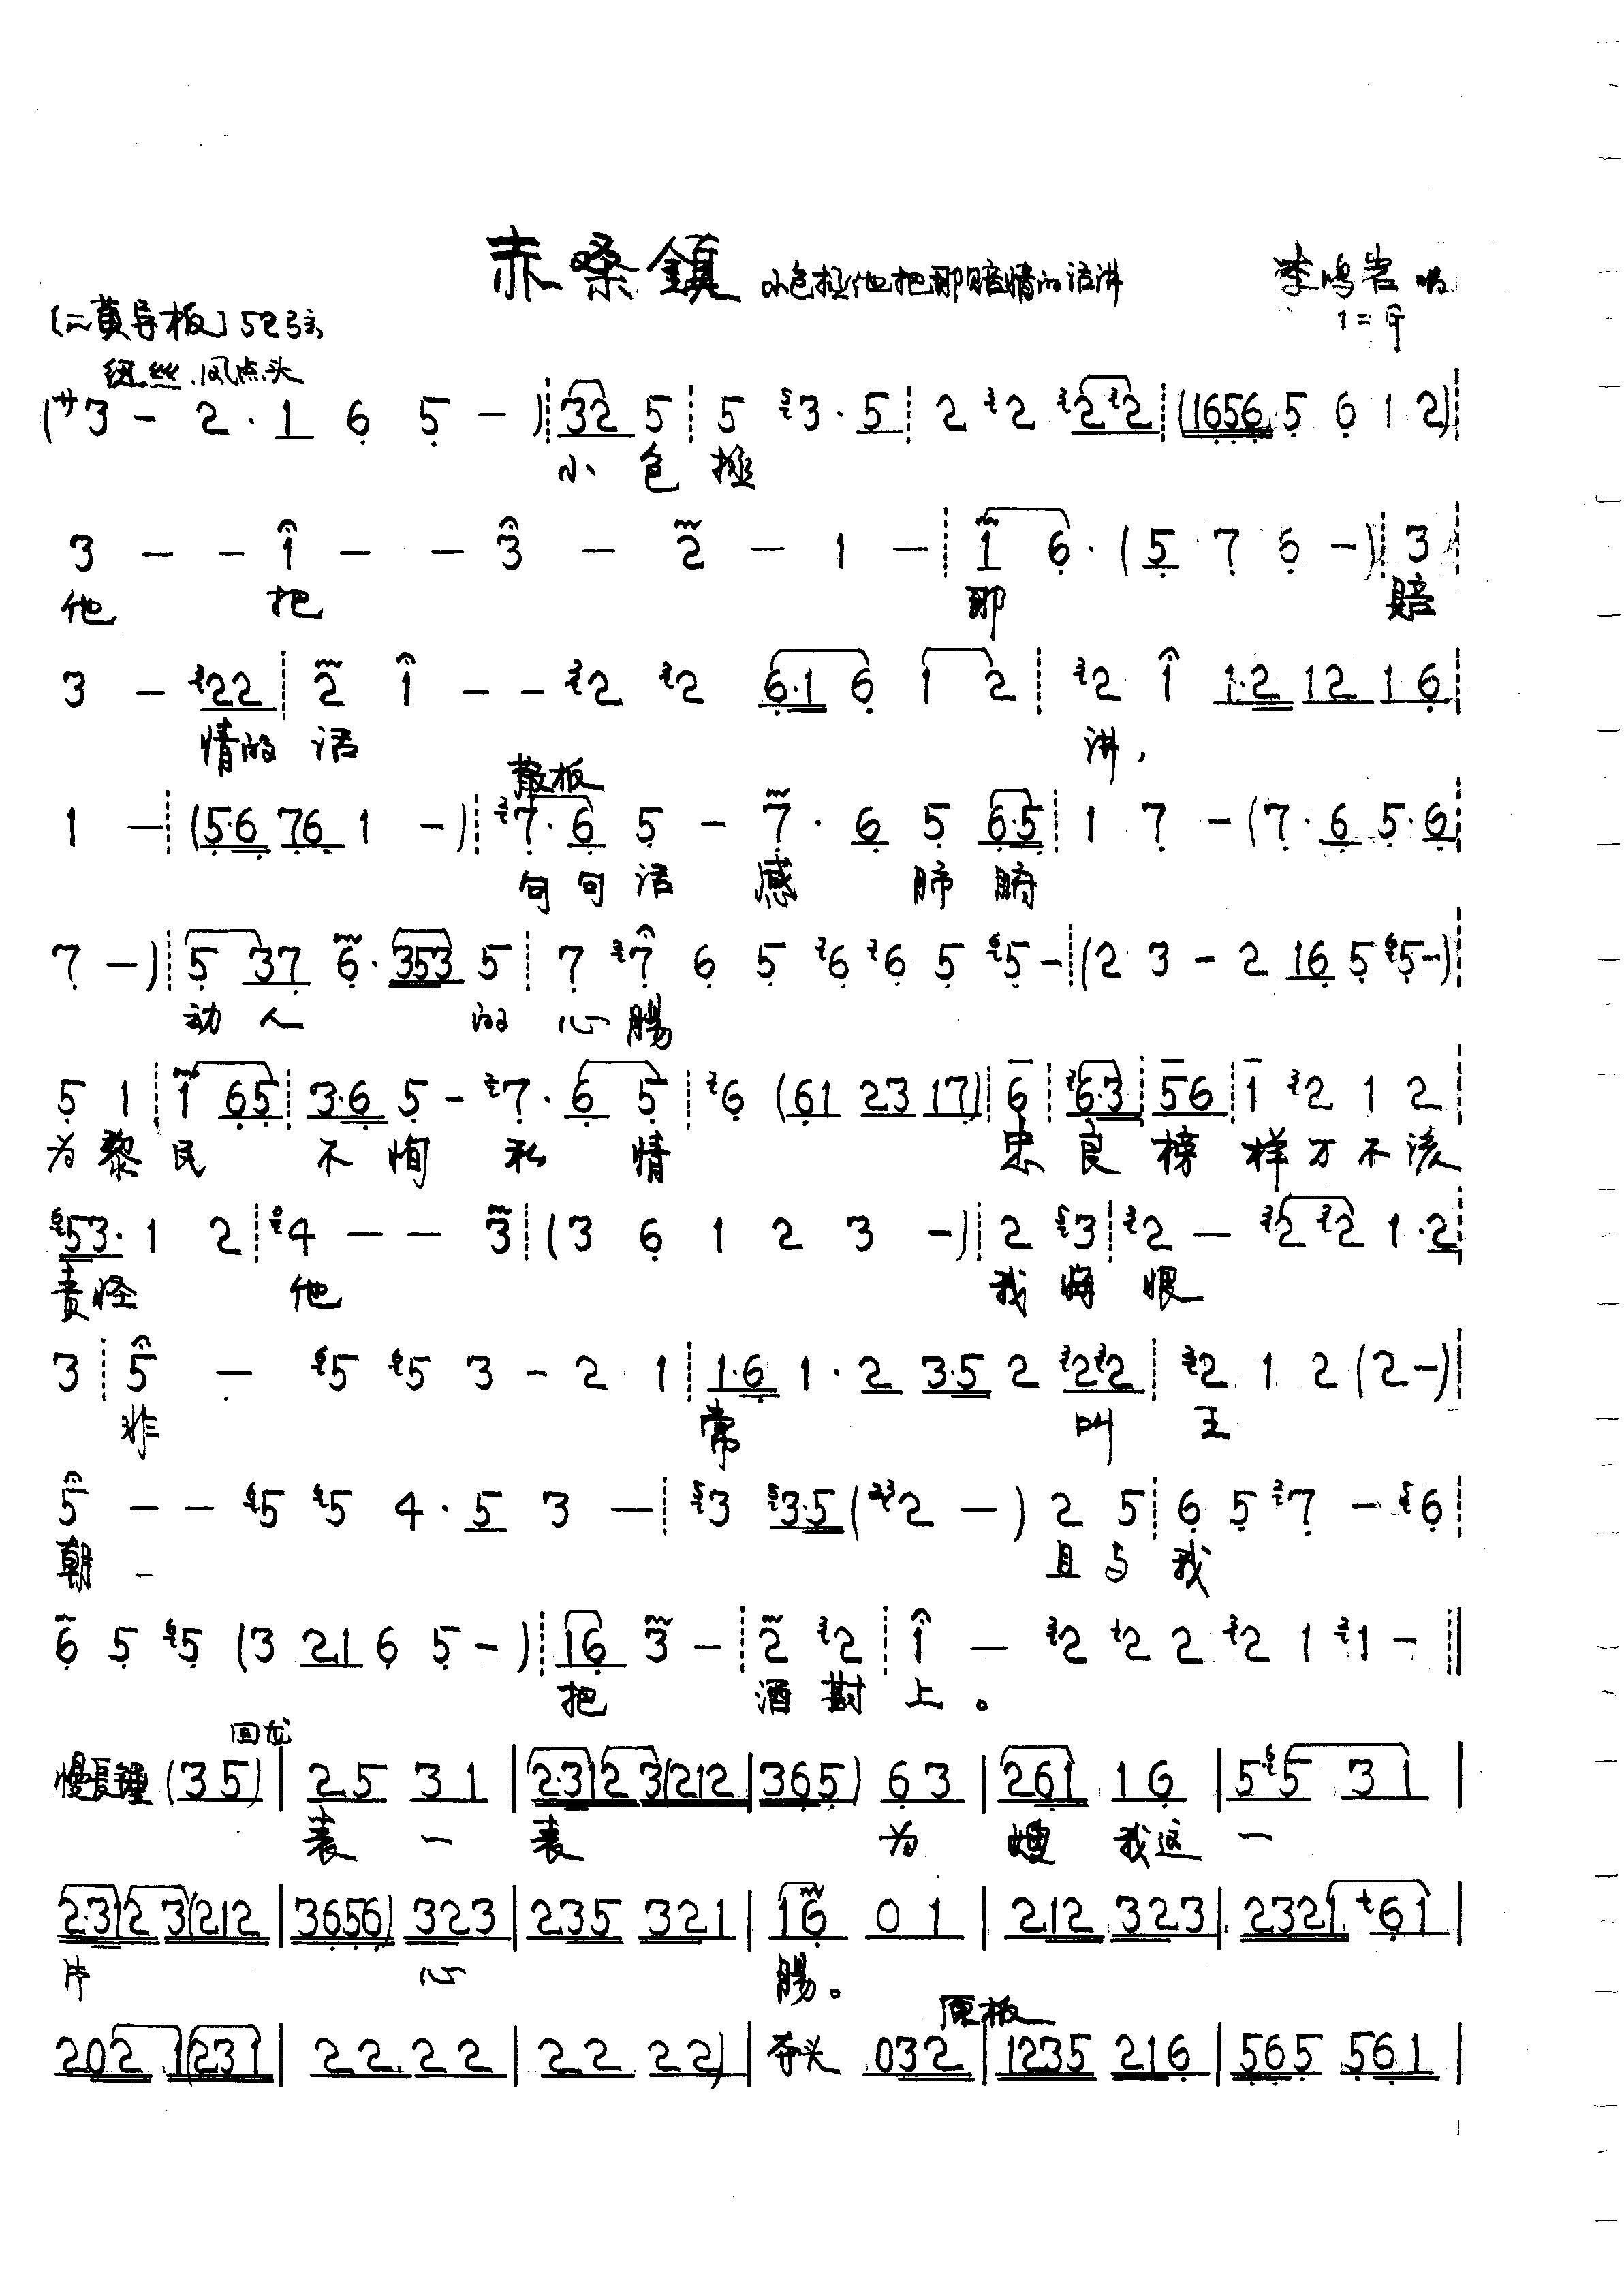 赤桑鎮 小包拯他把那赔情的话讲 李鸣岩 唱
〔二黄导板〕52弦 1=G
纽丝 风点头
(サ3 - 2 · 1 6 5 -) 32 5 5 3 · 5 2 2 2 2 (1656 5 6 1 2)
小 包 拯
3 - - 1 - - 3 - 2 - 1 - 1 6 · (5 7 6 -) 3
他 把 那 赔
3 - 22 2 1 - - 2 2 6·1 6 1 2 2 1 1·2 12 16
情的 话 讲，
散板
1 - (5·6 76 1 -) 7·6 5 - 7 · 6 5 6·5 1 7 - (7 · 6 5 · 6
句 句 话 感 肺 腑
7 -) 5 37 6 · 353 5 7 7 6 5 6 6 5 5 - (2 3 - 2 16 5 5 -)
动 人 的 心 腸
5 1 1 65 3·6 5 - 7 · 6 5 6 (61 23 17) 6 6·3 56 1 2 1 2
为 黎 民 不 恂 私 情 忠 良 榜 样 万 不 该
53 · 1 2 4 - - 3 (3 6 1 2 3 -) 2 3 2 - 2 2 1 · 2
责怪 他 我 悔 恨
3 5 - 5 5 3 - 2 1 1·6 1 · 2 3·5 2 22 2 1 2 (2 -)
非 常 叫 王
5 - - 5 5 4 · 5 3 - 3 3·5 (2 -) 2 5 6 5 7 - 6
朝 - 且 与 我
6 5 5 (3 21 6 5 -) 16 3 - 2 2 1 - 2 2 2 2 1 1 -
把 酒 斟 上。
回龙
慢長錘 (35) 25 31 2·312 3(212 365) 63 261 16 55 31
表 一 表 为 嫂 我这 一
2·312 3(212 3656) 323 235 321 16 01 212 323 2321 61
片 心 腸。
原板
202 1(231 22 22 22 22) 夺头 032 1235 216 565 561